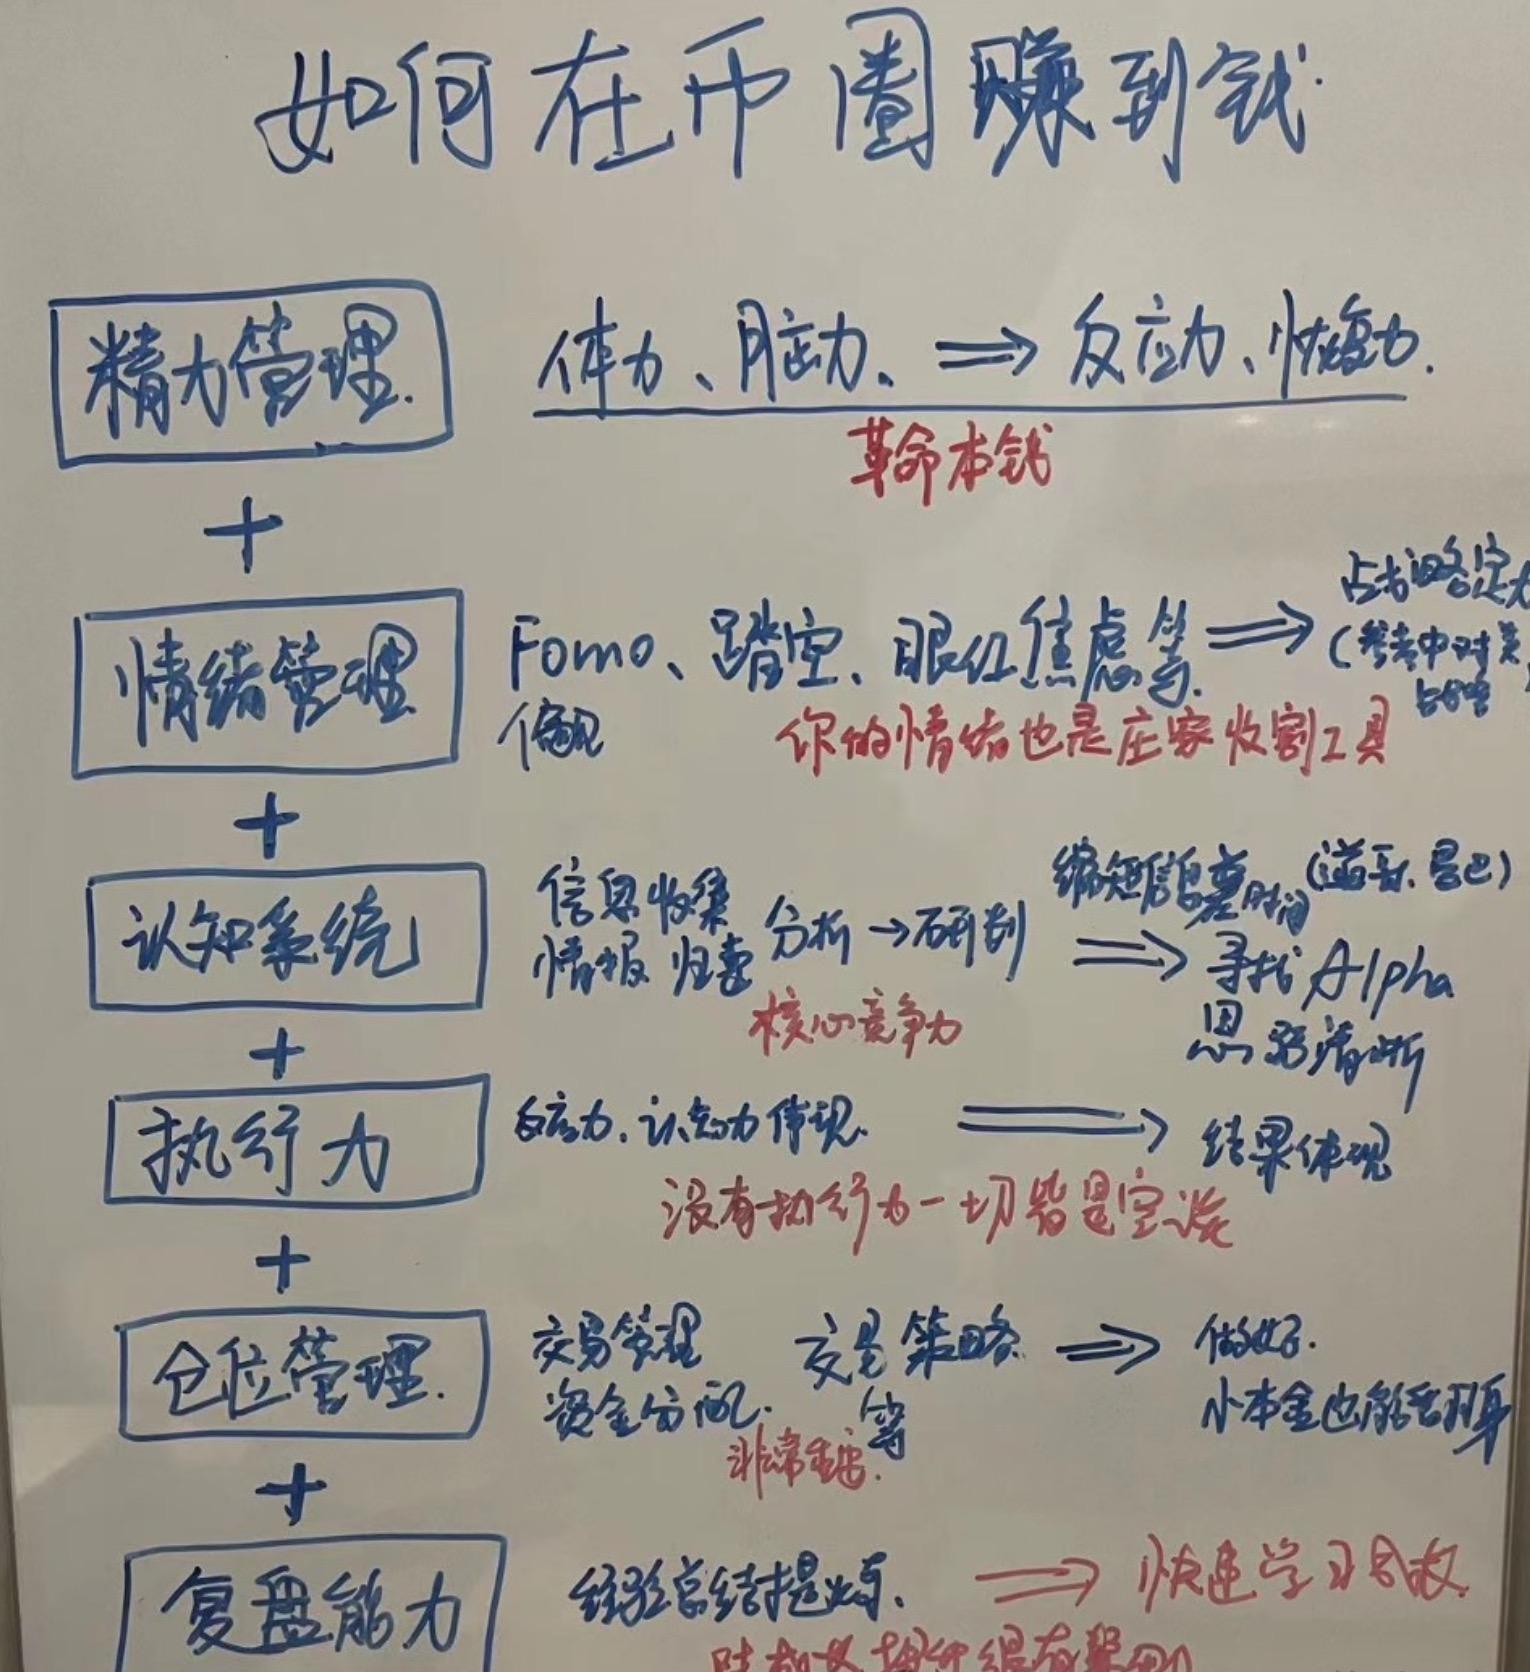 如何在币圈赚到钱
精力管理.
体力、脑力。⇒反应力、恢复力.
革命本钱
+
情绪管理
Fomo、踏空、眼红焦虑等.⇒
偏见
(参考中对
你的情绪也是庄家收割工具
+
认知系统
信息收集
情报归集
分析→研判
⇒
缩短信息差时间
寻找Alpha
思路清晰
核心竞争力
+
执行力
反应力.认知力体现.⇒结果体现
没有执行力一切皆是空谈
+
仓位管理.
交易管理
资金分配.
交易策略
等
⇒
做好.
小本金也能翻身
非常重要.
+
复盘能力
经验总结提炼.⇒快速学习